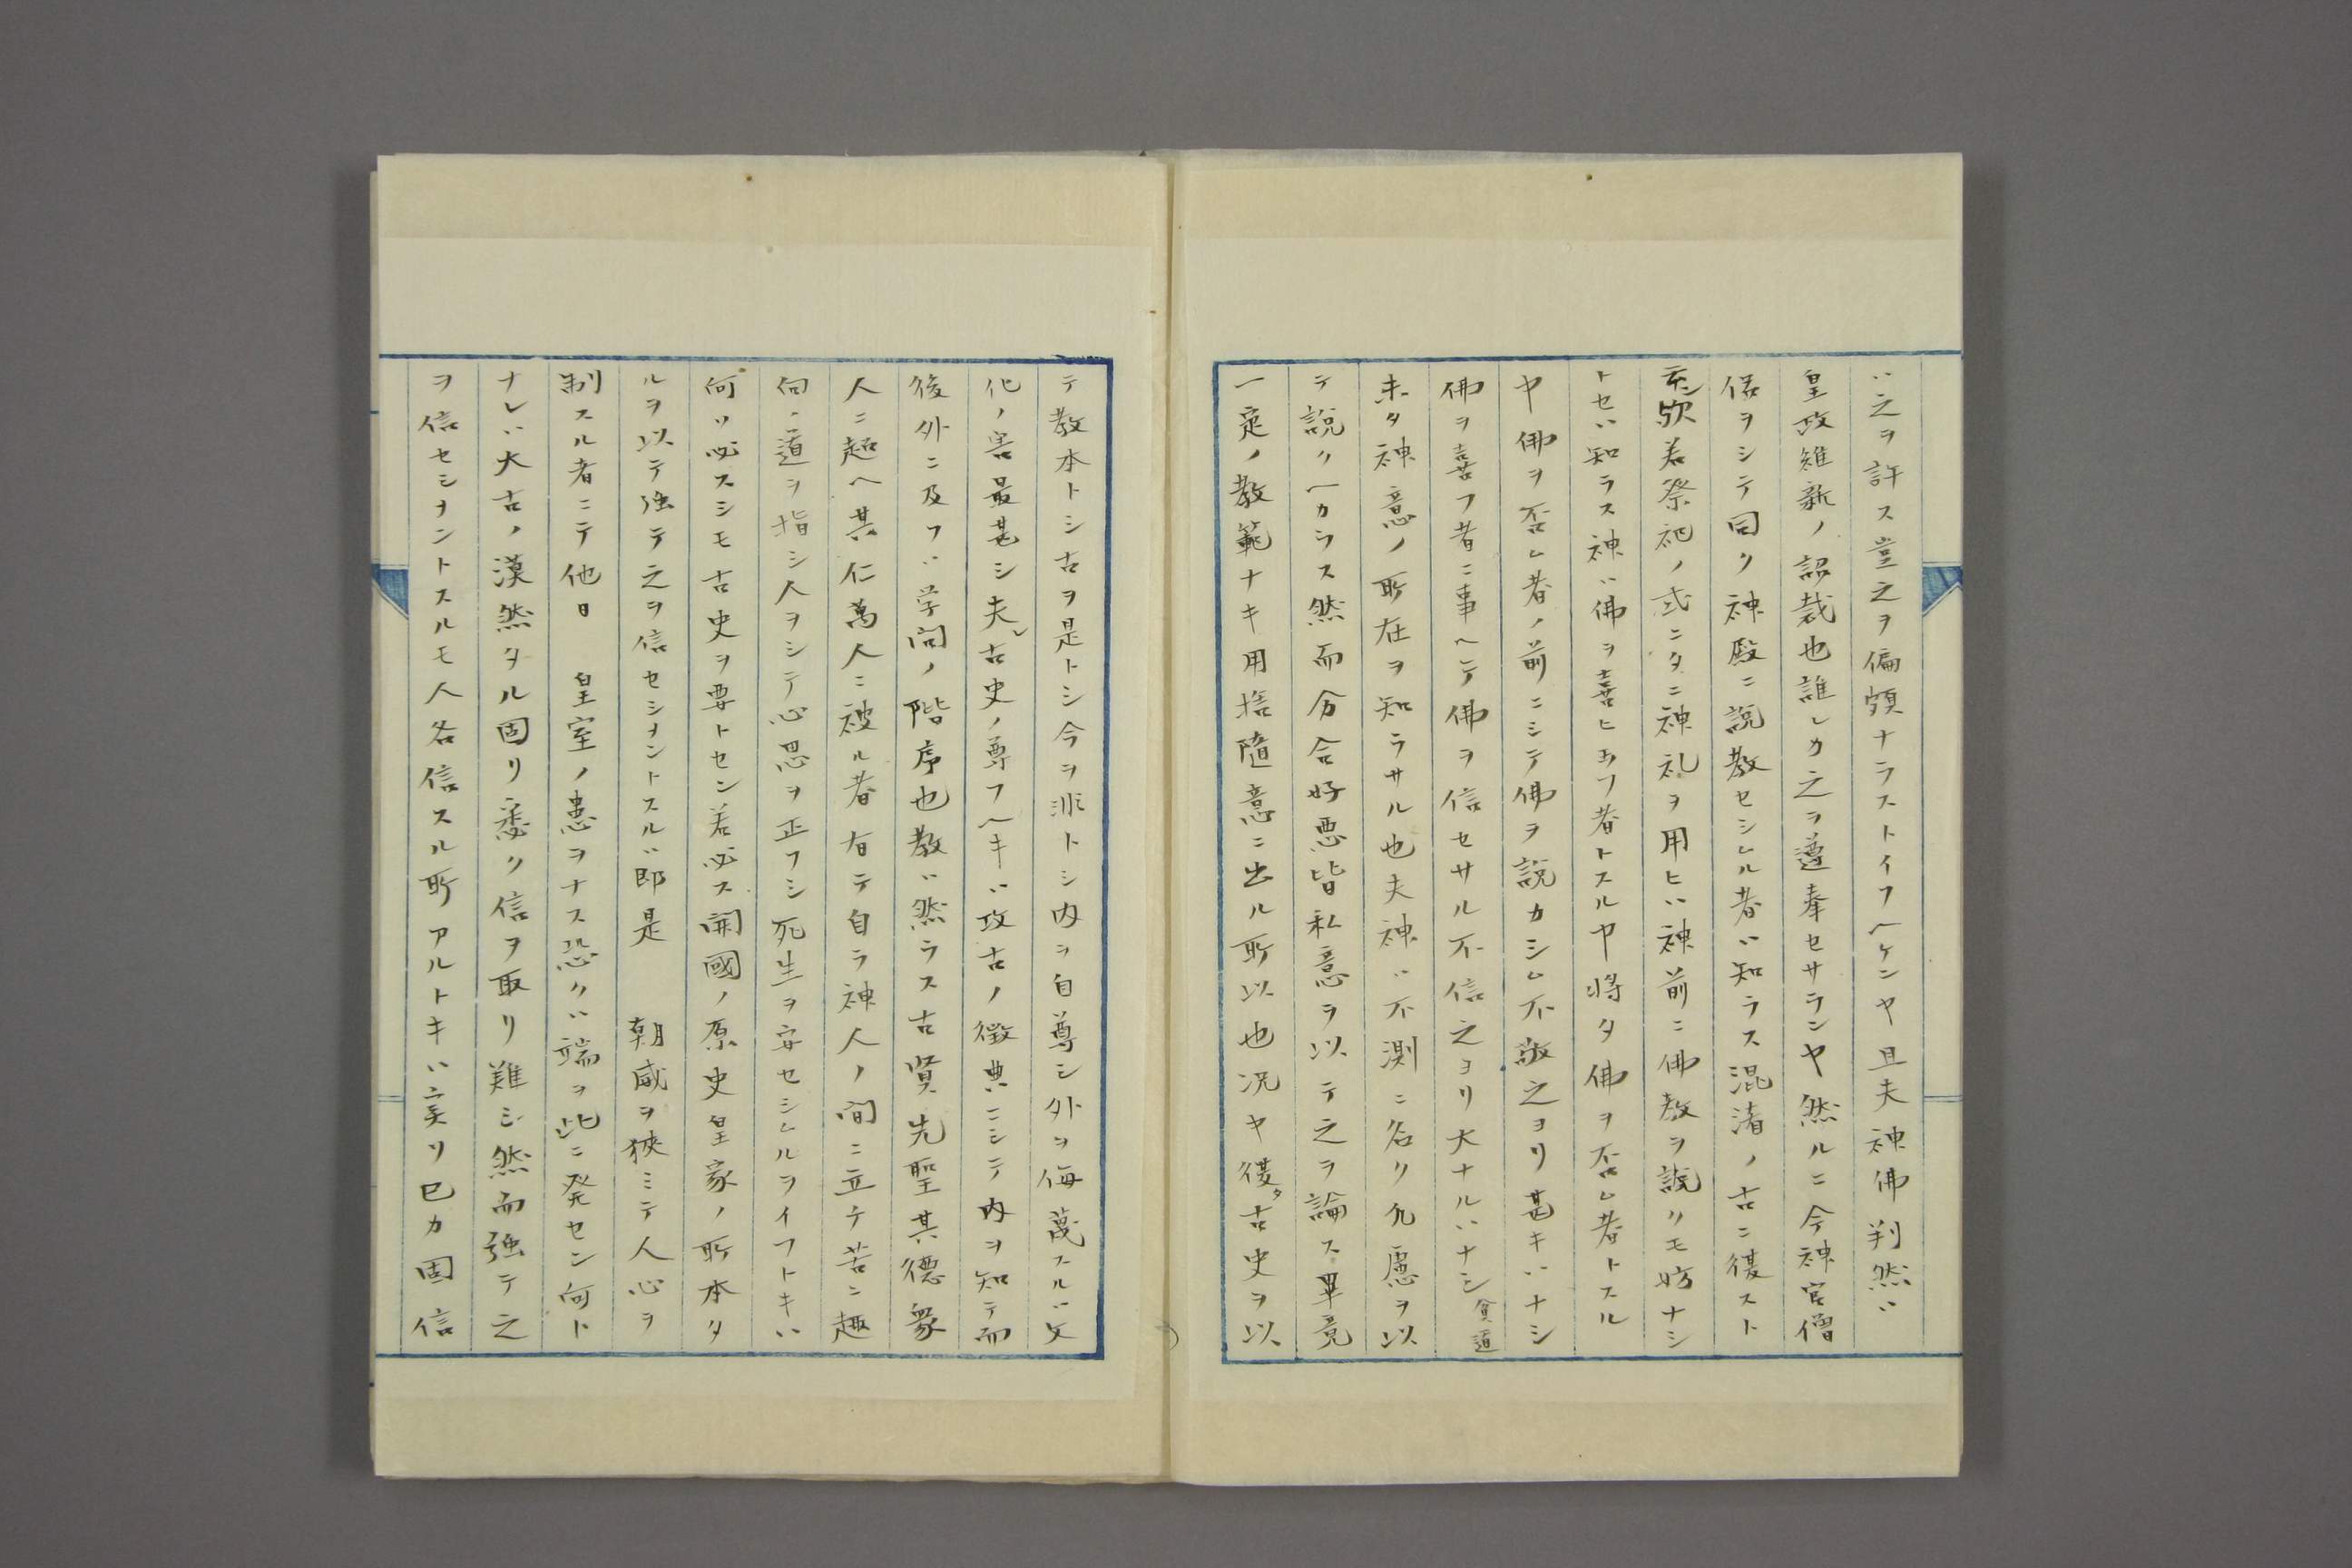 ハ之ヲ許ス豈之ヲ偏頗ナラストイフヘケンヤ且夫神佛判然ハ
皇政維新ノ詔裁也誰レカ之ヲ遵奉セサランヤ然ルニ今神官僧
侶ヲシテ同ク神殿ニ說教セシムル者ハ知ラス混淆ノ古ニ復スト
歟若祭祀ノ式ニタニ神礼ヲ用ヒハ神前ニ佛教ヲ說クモ妨ナシ
トセハ知ラス神ハ佛ヲ喜ヒ玉フ者トスルヤ將タ佛ヲ否ム者トスル
ヤ佛ヲ否ム者ノ前ニシテ佛ヲ說カシム不敬之ヨリ甚キハナシ
佛ヲ喜フ者ニ事ヘテ佛ヲ信セサル不信之ヨリ大ナルハナシ貧道
未タ神意ノ所在ヲ知ラサル也夫神ハ不測ニ名ク凡慮ヲ以
テ說クヘカラス然而分合好悪皆私意ヲ以テ之ヲ論ス畢竟
一定ノ教範ナキ用捨隨意ニ出ル所以也况ヤ復タ古史ヲ以
テ教本トシ古ヲ是トシ今ヲ非トシ内ヲ自尊シ外ヲ侮蔑スルハ文
化ノ害最甚シ夫レ古史ノ尊フヘキハ攷古ノ徴典ニシテ内ヲ知テ而
後外ニ及フハ学問ノ階序也教ハ然ラス古賢先聖其德衆
人ニ超ヘ其仁萬人ニ被ル者有テ自ラ神人ノ間ニ立テ苦ニ趣
向ノ道ヲ指シ人ヲシテ心思ヲ正フシ死生ヲ安セシムルヲイフトキハ
何ソ必スシモ古史ヲ要トセン若必ス開國ノ原史皇家ノ所本タ
ルヲ以テ强テ之ヲ信セシメントスルハ即是　朝威ヲ狹ミテ人心ヲ
制スル者ニテ他日　皇室ノ患ヲナス恐クハ端ヲ此ニ発セン何ト
ナレハ大古ノ漠然タル固リ悉ク信ヲ取リ難シ然而强テ之
ヲ信セシメントスルモ人各信スル所アルトキハ寧ソ已カ固信